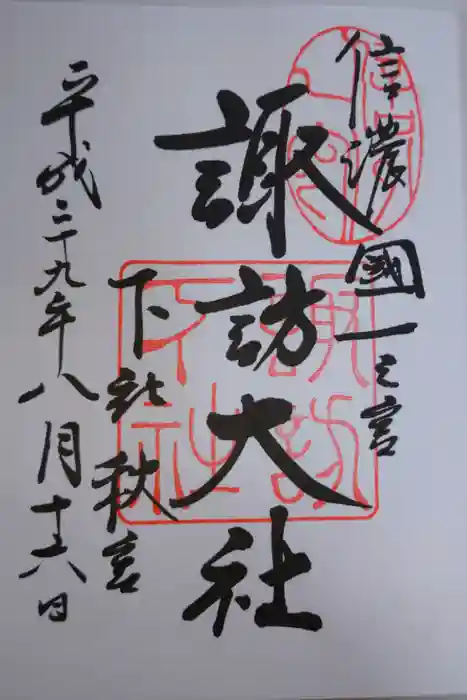 信濃國一之宮
諏訪大社
下社秋宮
平成二十九年八月十六日